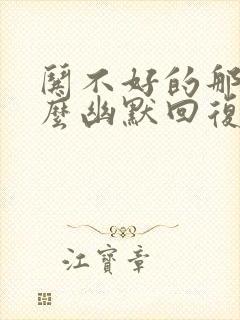 不好的那
麼幽默回復
江寶章